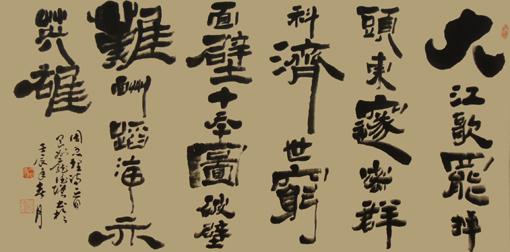 大江歌罷掉
頭東邃密群
科濟世窮
面壁十年圖破壁
難酬蹈海亦
英雄
壬辰年春月